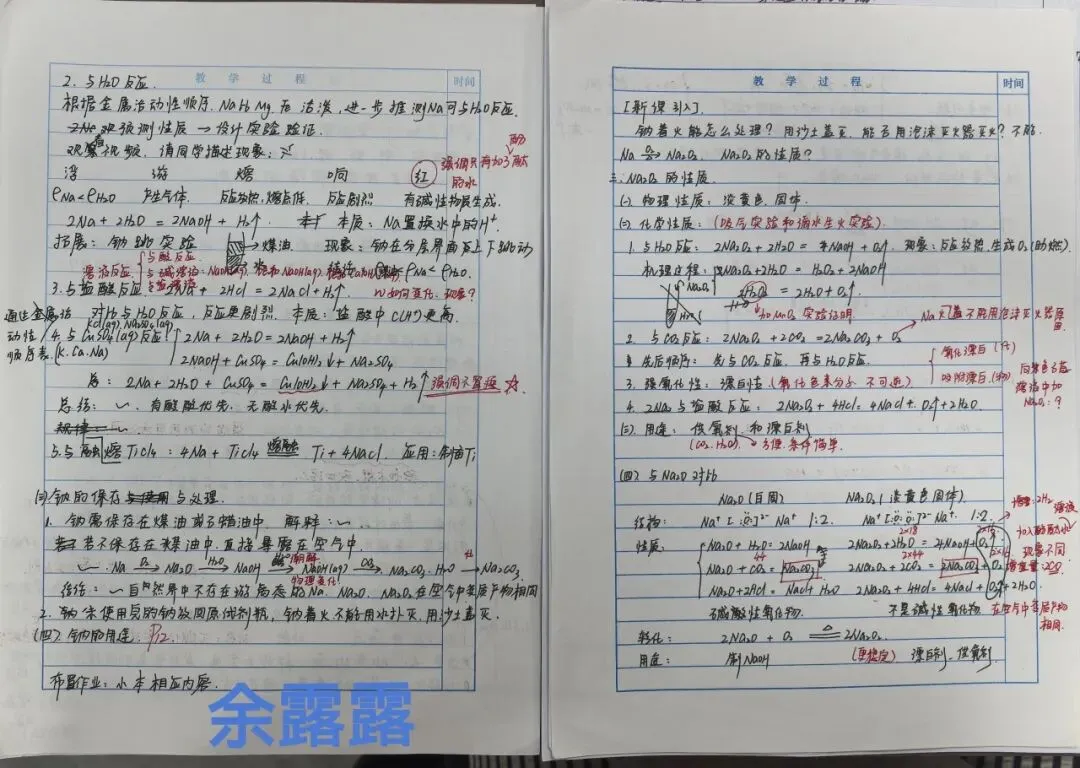 教 学 过 程 时间
2. 与H₂O反应.
根据金属活动性顺序, Na比Mg, Fe 活泼, 进一步推测Na可与H₂O反应.
预测性质 → 设计实验验证.
观察视频, 请同学描述现象:
浮 游 熔 响 红
酚
强调只有加了酚酞的水
ρNa<ρH₂O 产生气体 反应放热, 熔点低. 反应剧烈 有碱性物质生成.
2Na + 2H₂O = 2NaOH + H₂↑. 本质: Na置换水中的H⁺.
拓展: 钠跳实验 → 煤油 现象: 钠在分层界面处上下跳动
ρ煤油<ρNa<ρH₂O.
溶液反应 与酸反应
与碱溶液: NaOH(aq). 饱和NaOH(aq)
与盐溶液
3. 与盐酸反应: 2Na + 2HCl = 2NaCl + H₂↑. 如何变化. 现象?
对比与H₂O反应, 反应更剧烈. 本质: 盐酸中C(H⁺)更高.
KCl(aq), Na₂SO₄(aq)
通过金属活动性顺序表. (K. Ca. Na)
4. 与CuSO₄(aq)反应 2Na + 2H₂O = 2NaOH + H₂↑
2NaOH + CuSO₄ = Cu(OH)₂↓ + Na₂SO₄
总: 2Na + 2H₂O + CuSO₄ = Cu(OH)₂↓ + Na₂SO₄ + H₂↑ 强调不置换 ☆.
总结: ~. 有酸酸优先. 无酸水优先.
规律: ~
5. 与熔融TiCl₄: 4Na + TiCl₄ 熔融 Ti + 4NaCl. 应用: 制备Ti
(三) 钠的保存与使用与处理.
1. 钠需保存在煤油或石蜡油中. 解释: ~
若不保存在煤油中, 直接暴露在空气中.
Na —O₂→ Na₂O —H₂O→ NaOH —潮解 物理变化!→ NaOH(aq) —CO₂→ Na₂CO₃·H₂O → Na₂CO₃
结论: ~ 自然界中不存在游离态的Na. Na₂O. Na₂O₂在空气中变质产物相同
2. 钠未使用完的钠放回原试剂瓶, 钠着火不能用水扑灭, 用沙土盖灭.
(四) 钠的用途. P12
布置作业: 小本相应内容.
余露露
教 学 过 程 时间
[新课引入].
钠着火能怎么处理? 用沙土盖灭. 能否用泡沫灭火器灭火? 不能.
Na —O₂→ Na₂O₂. Na₂O₂的性质?
三. Na₂O₂的性质.
(一) 物理性质: 淡黄色. 固体.
(二) 化学性质: (吹气实验和滴水生火实验).
1. 与H₂O反应: 2Na₂O₂ + 2H₂O = 4NaOH + O₂↑. 现象: 反应放热, 生成O₂(助燃).
机理过程: Na₂O₂+2H₂O = H₂O₂ + 2NaOH
Na₂O₂ 2H₂O₂ = 2H₂O + O₂↑.
加MnO₂ 实验证明.
Na灭火不能用泡沫灭火器原因.
2. 与CO₂反应: 2Na₂O₂ + 2CO₂ = 2Na₂CO₃ + O₂
先后顺序: 先与CO₂反应, 再与H₂O反应.
3. 强氧化性: 漂白性 (氧化色素分子 不可逆) 氧化漂白 (化) 吸附漂白 (物)
向紫色石蕊溶液中加Na₂O₂: ?
4. 2Na₂O₂ 与盐酸反应: 2Na₂O₂ + 4HCl = 4NaCl + O₂↑ + 2H₂O.
(三). 用途: 供氧剂 和漂白剂
(CO₂. H₂O). → 方便. 条件简单.
(四) 与Na₂O对比
Na₂O (白固) Na₂O₂ (淡黄色固体).
结构: Na⁺ [:Ö:]²⁻ Na⁺ 1:2. Na⁺ [:Ö:Ö:]²⁻ Na⁺. 1:2.
性质: Na₂O + H₂O = 2NaOH 2Na₂O₂+2H₂O = 4NaOH + O₂↑
Na₂O + CO₂ = Na₂CO₃ 2Na₂O₂ + 2CO₂ = 2Na₂CO₃ + O₂
Na₂O+2HCl = NaCl + H₂O 2Na₂O₂ + 4HCl = 4NaCl + O₂↑ + 2H₂O
加入酚酞水溶液 现象不同
碱性氧化物 不是碱性氧化物 在空气中变质产物相同.
转化: 2Na₂O + O₂ △ 2Na₂O₂.
用途: 制NaOH (更稳定) 漂白剂. 供氧剂.